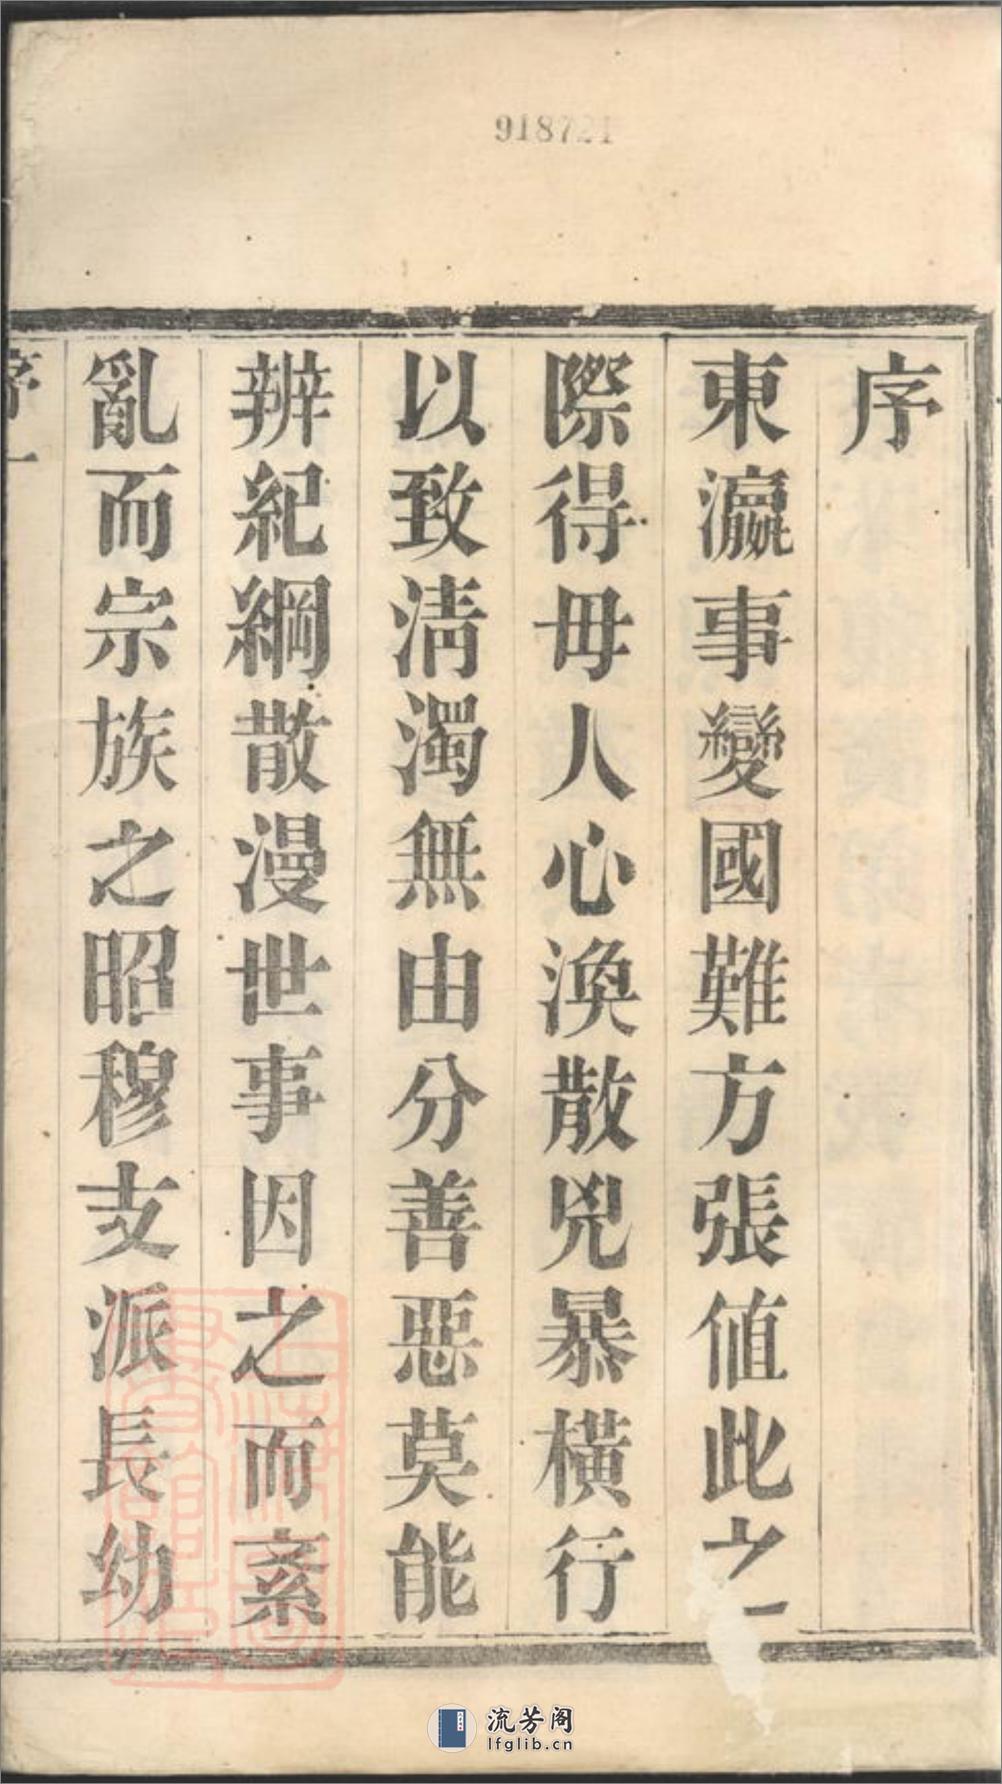 918721
序
東瀛事變國難方張値此之
際得毋人心渙散兇暴橫行
以致淸濁無由分善惡莫能
辨紀綱散漫世事因之而紊
亂而宗族之昭穆支派長幼
序一
流芳阁
lfglib.cn